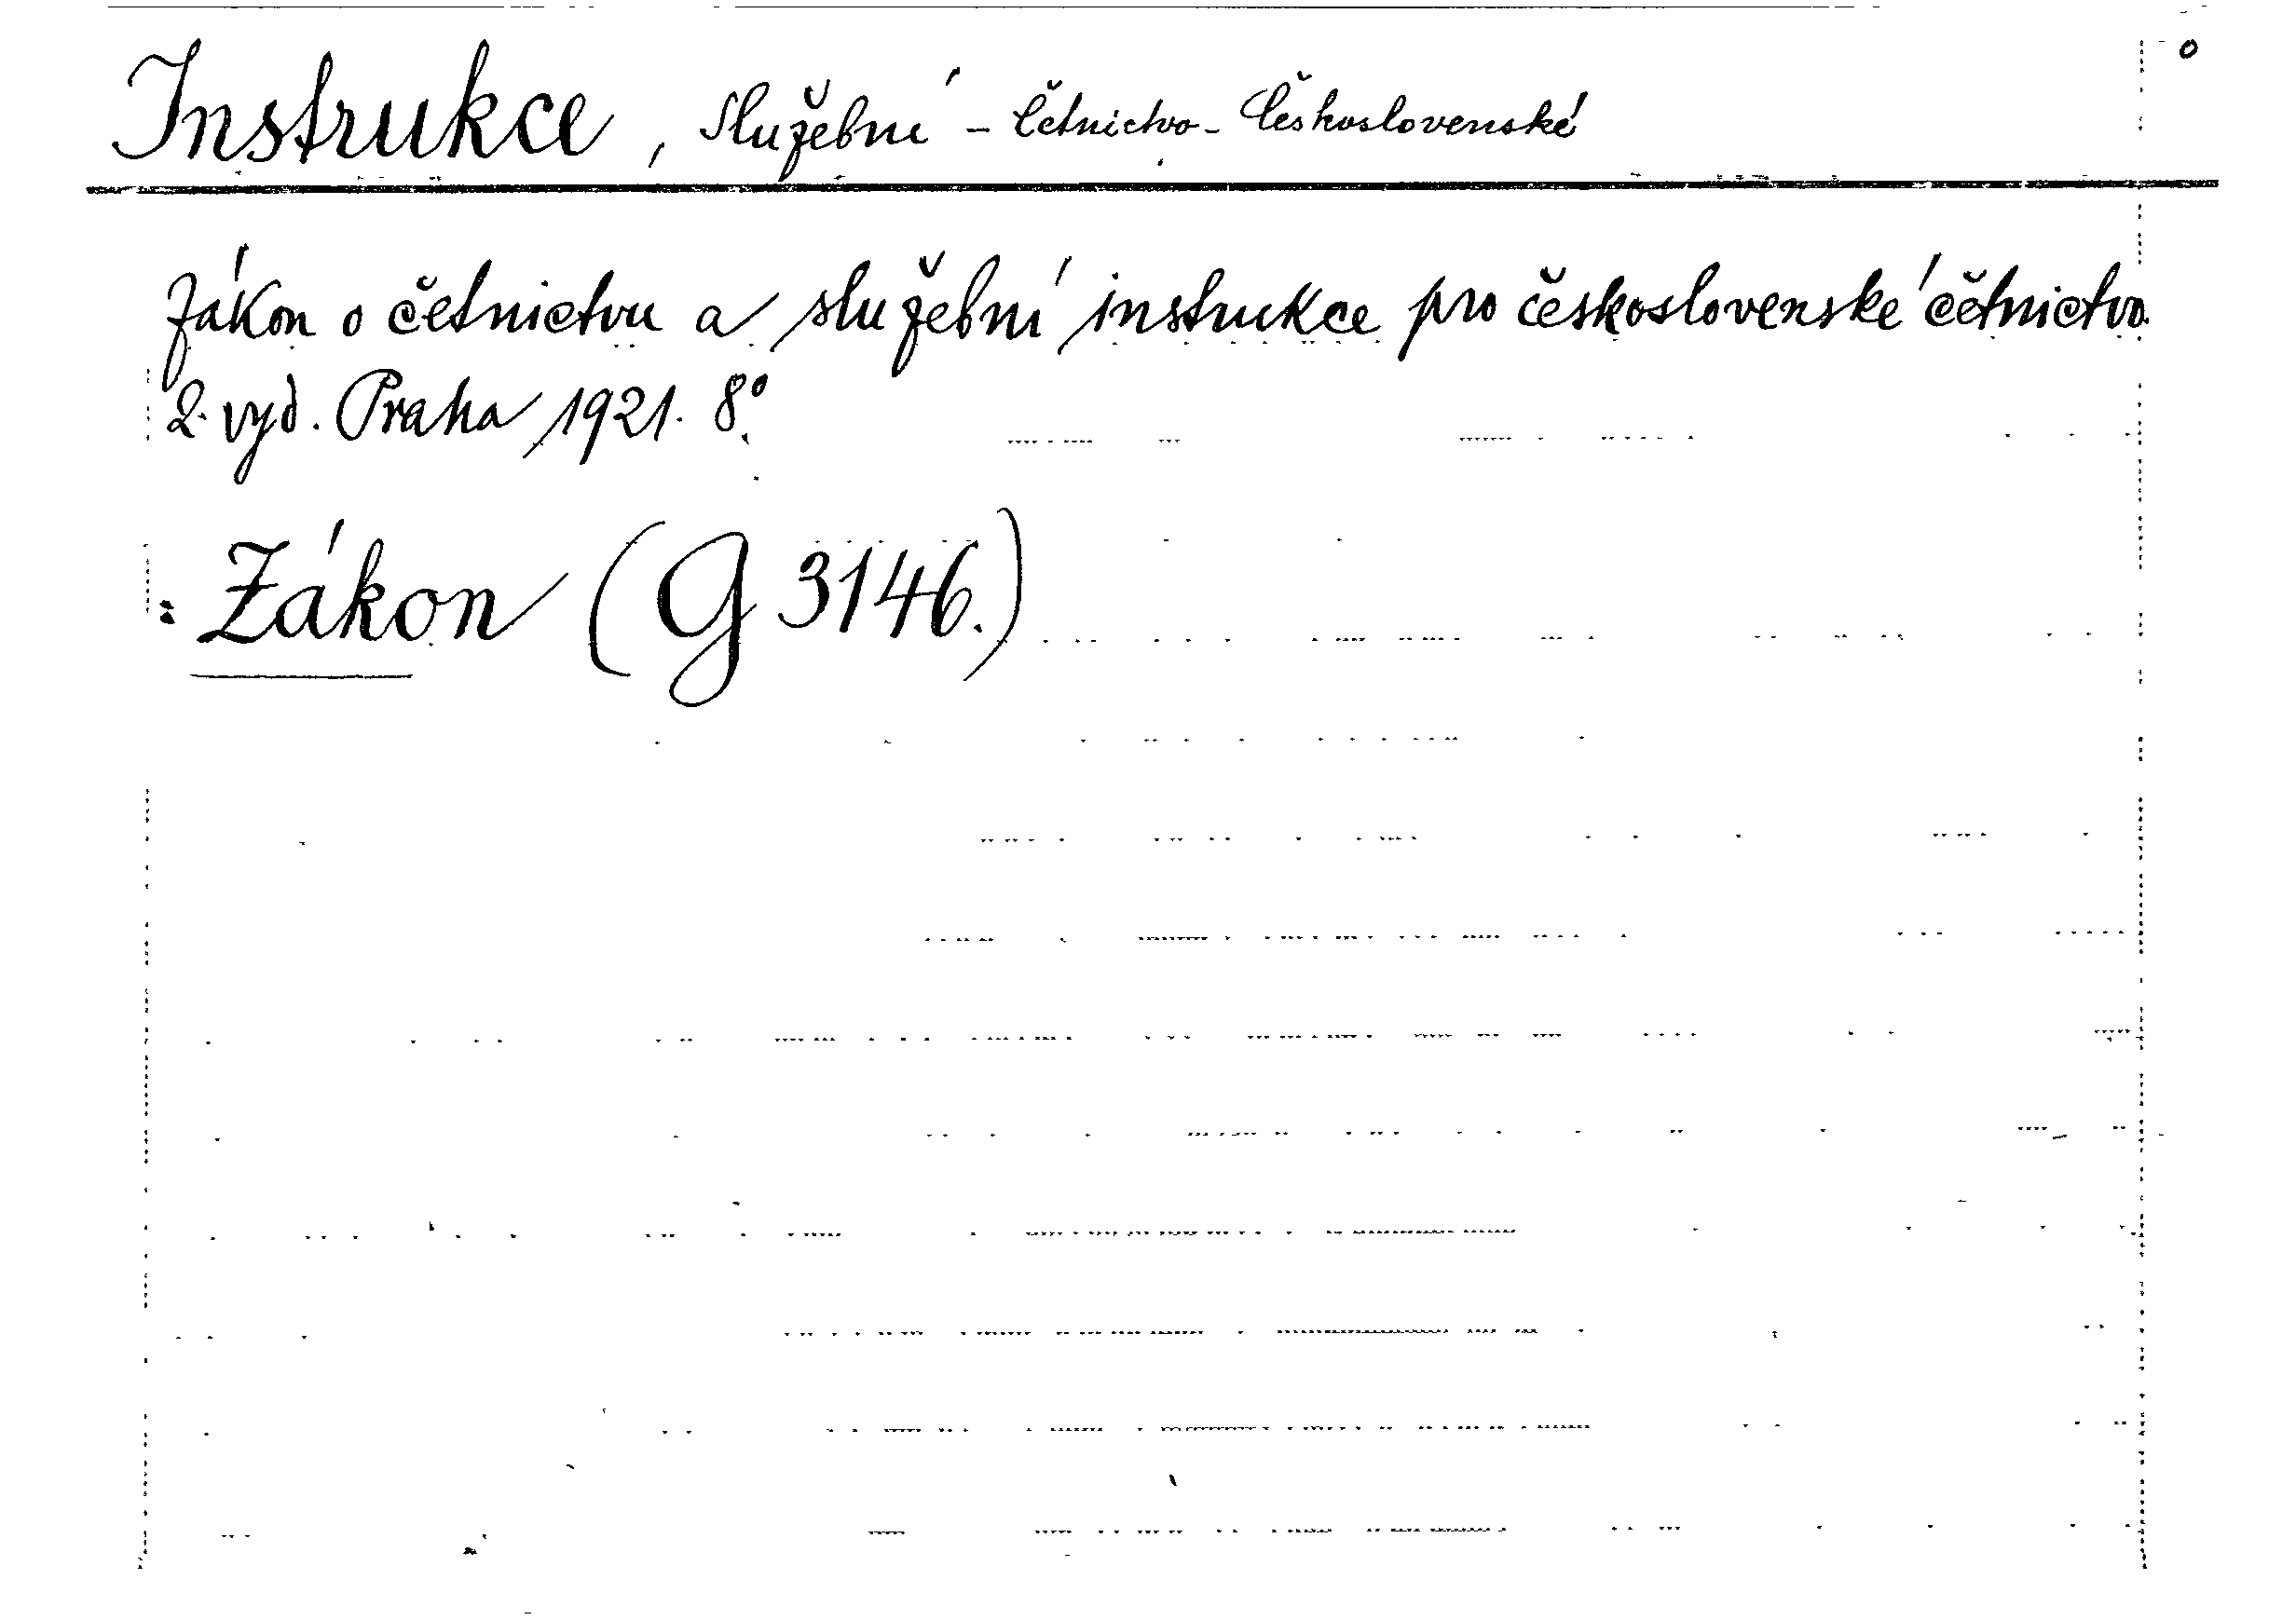 Instrukce, služební - četnictvo - Československé
Zákon o četnictvu a služební instrukce pro československé četnictvo.
2. vyd. Praha 1921. 8°.
: Zákon (G 3146.)